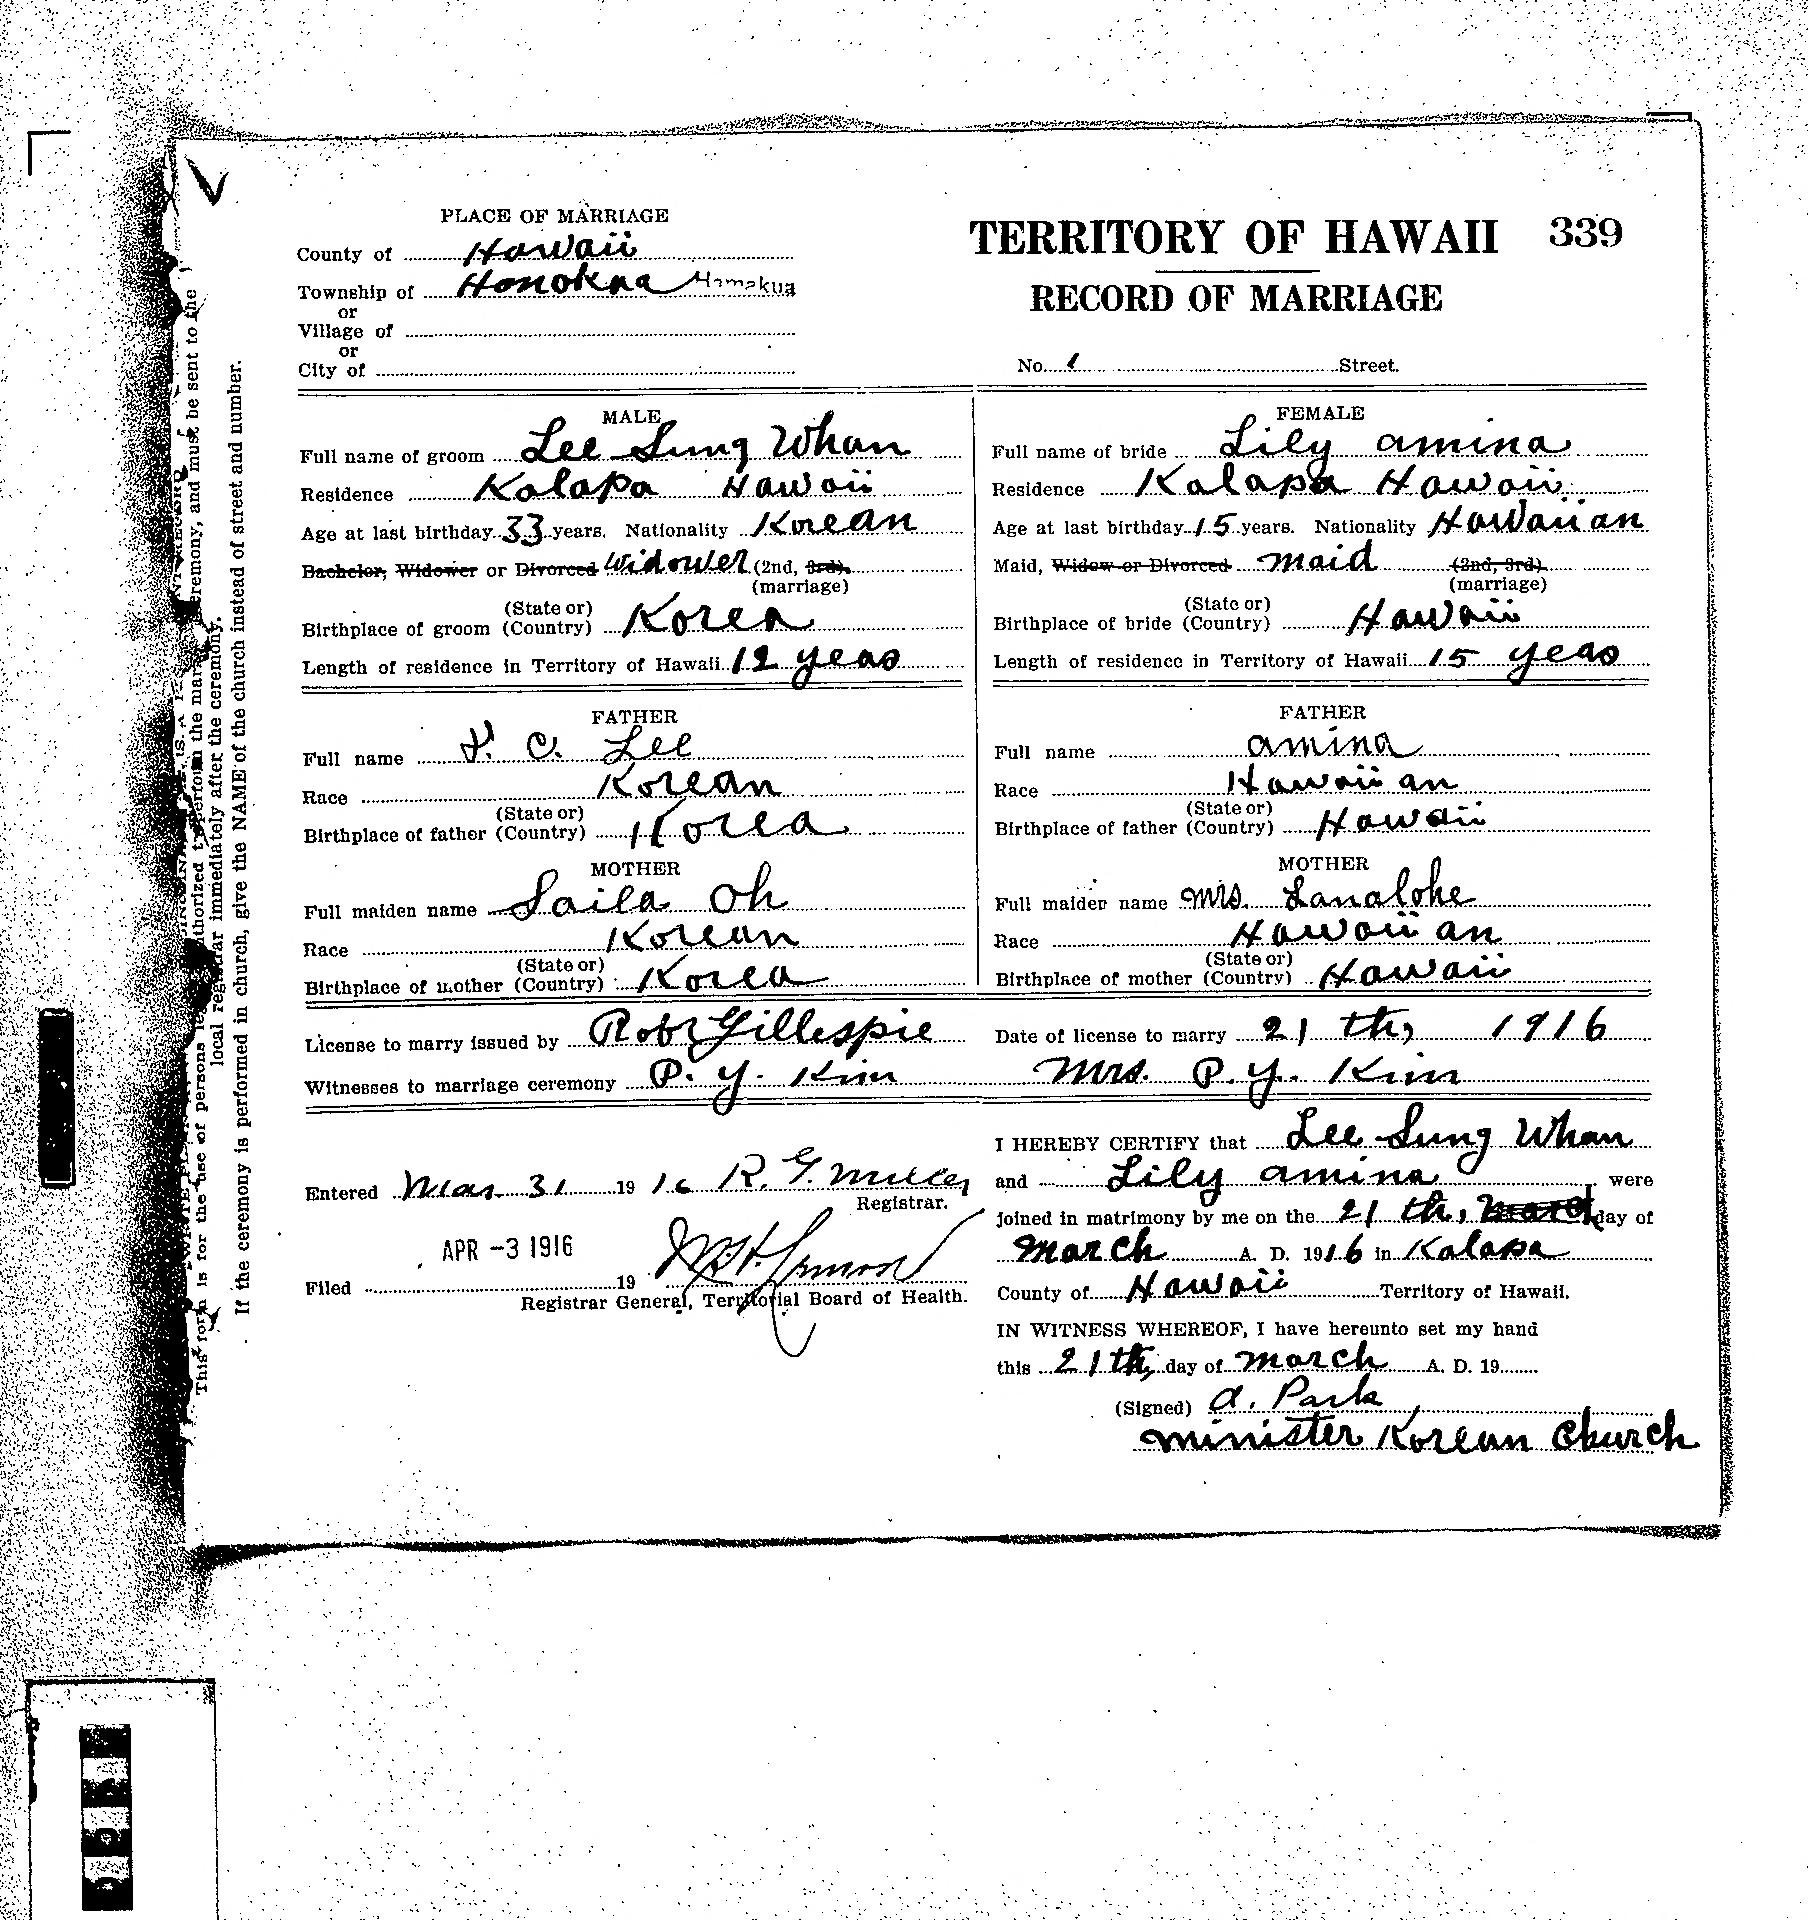 PLACE OF MARRIAGE
County of Hawaii
Township of Honokaa Hamakua
or
Village of
or
City of
TERRITORY OF HAWAII 339
RECORD OF MARRIAGE
No. 1 Street.
MALE
Full name of groom Lee Sung Whan
Residence Kalapa Hawaii
Age at last birthday 33 years. Nationality Korean
Bachelor, Widower or Divorced Widower (2nd, 3rd).
(marriage)
(State or)
Birthplace of groom (Country) Korea
Length of residence in Territory of Hawaii 12 yeas
FATHER
Full name C. Lee
Race Korean
(State or)
Birthplace of father (Country) Korea
MOTHER
Full maiden name Saila Oh
Race Korean
(State or)
Birthplace of mother (Country) Korea
FEMALE
Full name of bride Lily amina
Residence Kalapa Hawaii
Age at last birthday 15 years. Nationality Hawaiian
Maid, Widow or Divorced maid (2nd, 3rd)
(marriage)
(State or)
Birthplace of bride (Country) Hawaii
Length of residence in Territory of Hawaii 15 yeas
FATHER
Full name amina
Race Hawaiian
(State or)
Birthplace of father (Country) Hawaii
MOTHER
Full maiden name Mrs. Lanalohe
Race Hawaiian
(State or)
Birthplace of mother (Country) Hawaii
License to marry issued by Robt Gillespie Date of license to marry 21 th, 1916
Witnesses to marriage ceremony P. Y. Kim Mrs. P. Y. Kim
Entered Mar 31 1916 R. G. Miller
Registrar.
APR -3 1916
Filed 19
Registrar General, Territorial Board of Health.
I HEREBY CERTIFY that Lee Sung Whan
and Lily amina were
joined in matrimony by me on the 21 th, March day of
March A. D. 1916 in Kalapa
County of Hawaii Territory of Hawaii.
IN WITNESS WHEREOF, I have hereunto set my hand
this 21th, day of March A. D. 19
(Signed) A. Park
minister Korean Church
This form is for the use of persons authorized to perform the marriage ceremony, and must be sent to the
local registrar immediately after the ceremony.
If the ceremony is performed in church, give the NAME of the church instead of street and number.